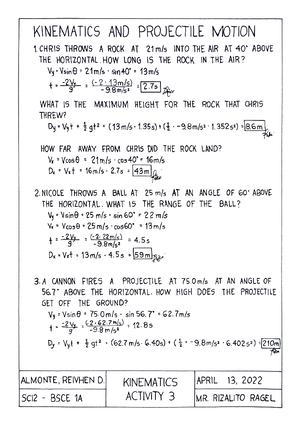 KINEMATICS AND PROJECTILE MOTION
1. CHRIS THROWS A ROCK AT 21 m/s INTO THE AIR AT 40° ABOVE
THE HORIZONTAL. HOW LONG IS THE ROCK IN THE AIR?
Vy = Vsinθ = 21 m/s · sin 40° = 13 m/s
t = -2Vy/g = (-2 · 13 m/s)/-9.8 m/s² = 2.7s
WHAT IS THE MAXIMUM HEIGHT FOR THE ROCK THAT CHRIS
THREW?
Dy = Vyt + ½ gt² = (13 m/s · 1.35s) + (½ · -9.8 m/s² · 1.352s²) = 8.6m
HOW FAR AWAY FROM CHRIS DID THE ROCK LAND?
Vx = Vcosθ = 21 m/s · cos 40° = 16 m/s
Dx = Vxt = 16 m/s · 2.7s = 43m
2. NICOLE THROWS A BALL AT 25 m/s AT AN ANGLE OF 60° ABOVE
THE HORIZONTAL. WHAT IS THE RANGE OF THE BALL?
Vy = Vsinθ = 25 m/s · sin 60° = 22 m/s
Vx = Vcosθ = 25 m/s · cos 60° = 13 m/s
t = -2Vy/g = (-2 · 22 m/s)/-9.8 m/s² = 4.5s
Dx = Vxt = 13 m/s · 4.5s = 59m
3. A CANNON FIRES A PROJECTILE AT 75.0 m/s AT AN ANGLE OF
56.7° ABOVE THE HORIZONTAL. HOW HIGH DOES THE PROJECTILE
GET OFF THE GROUND?
Vy = Vsinθ = 75.0 m/s · sin 56.7° = 62.7 m/s
t = -2Vy/g = (-2 · 62.7 m/s)/-9.8 m/s² = 12.8s
Dy = Vyt + ½ gt² = (62.7 m/s · 6.40s) + (½ · -9.8 m/s² · 6.402s²) = 210m
ALMONTE, REIVHEN D.
SCI2 - BSCE 1A
KINEMATICS
ACTIVITY 3
APRIL 13, 2022
MR. RIZALITO RAGEL